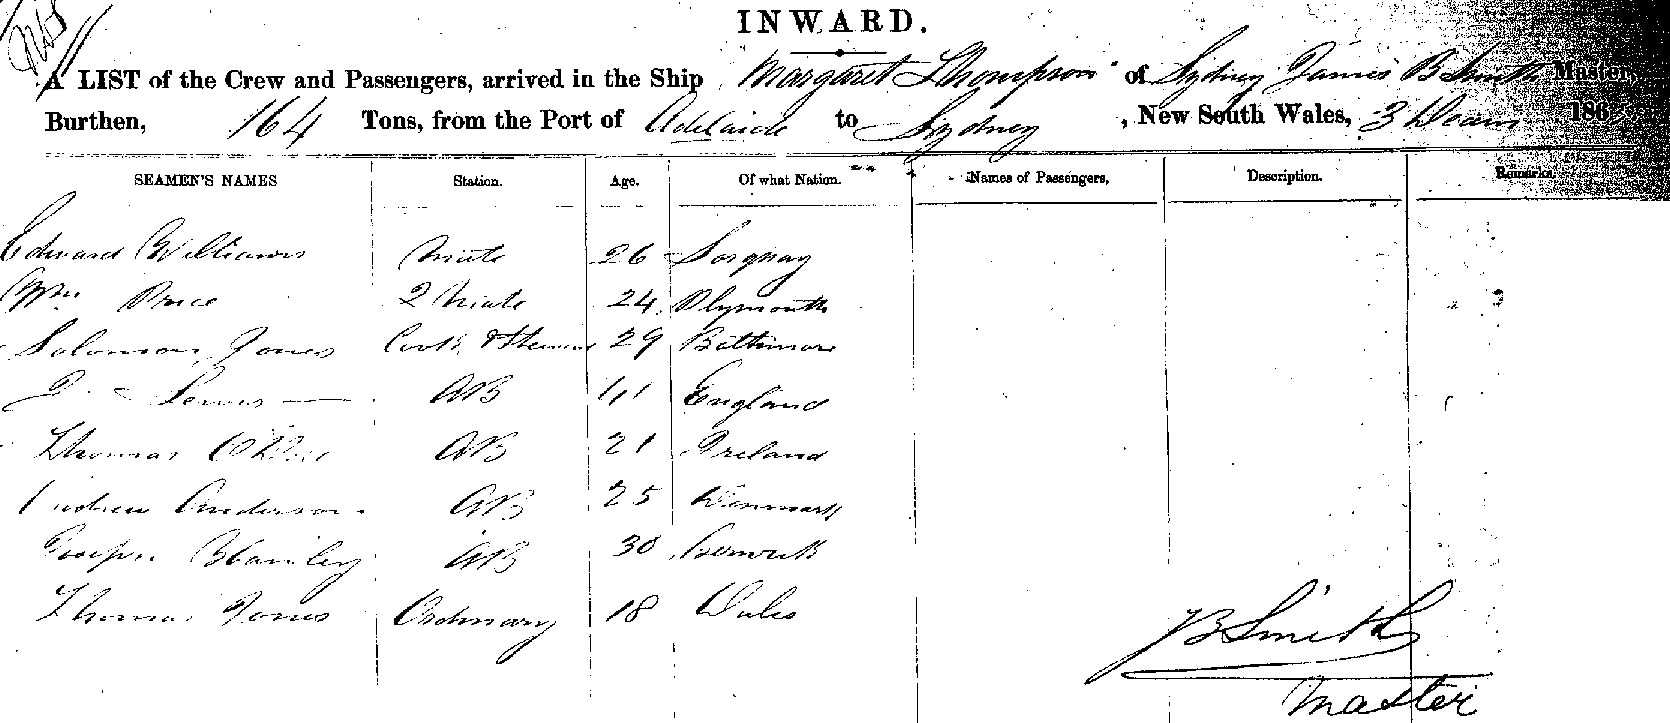 INWARD.
A LIST of the Crew and Passengers, arrived in the Ship Margaret Thompson of Sydney James B Smith Master,
Burthen, 164 Tons, from the Port of Adelaide to Sydney, New South Wales, 3 186
SEAMEN'S NAMES Station. Age. Of what Nation. Names of Passengers, Description. Remarks.
Edward Williams Mate 26 Torquay
Wm. Price 2 Mate 24 Plymouth
Solomon Jones Cook & 29 Baltimore
Lewis AB 41 England
Thomas AB 21 Ireland
Andrew Anderson AB 25 Denmark
Joseph AB 30 Berwick
Thomas Jones Ordinary 18 Wales
JB Smith
Master